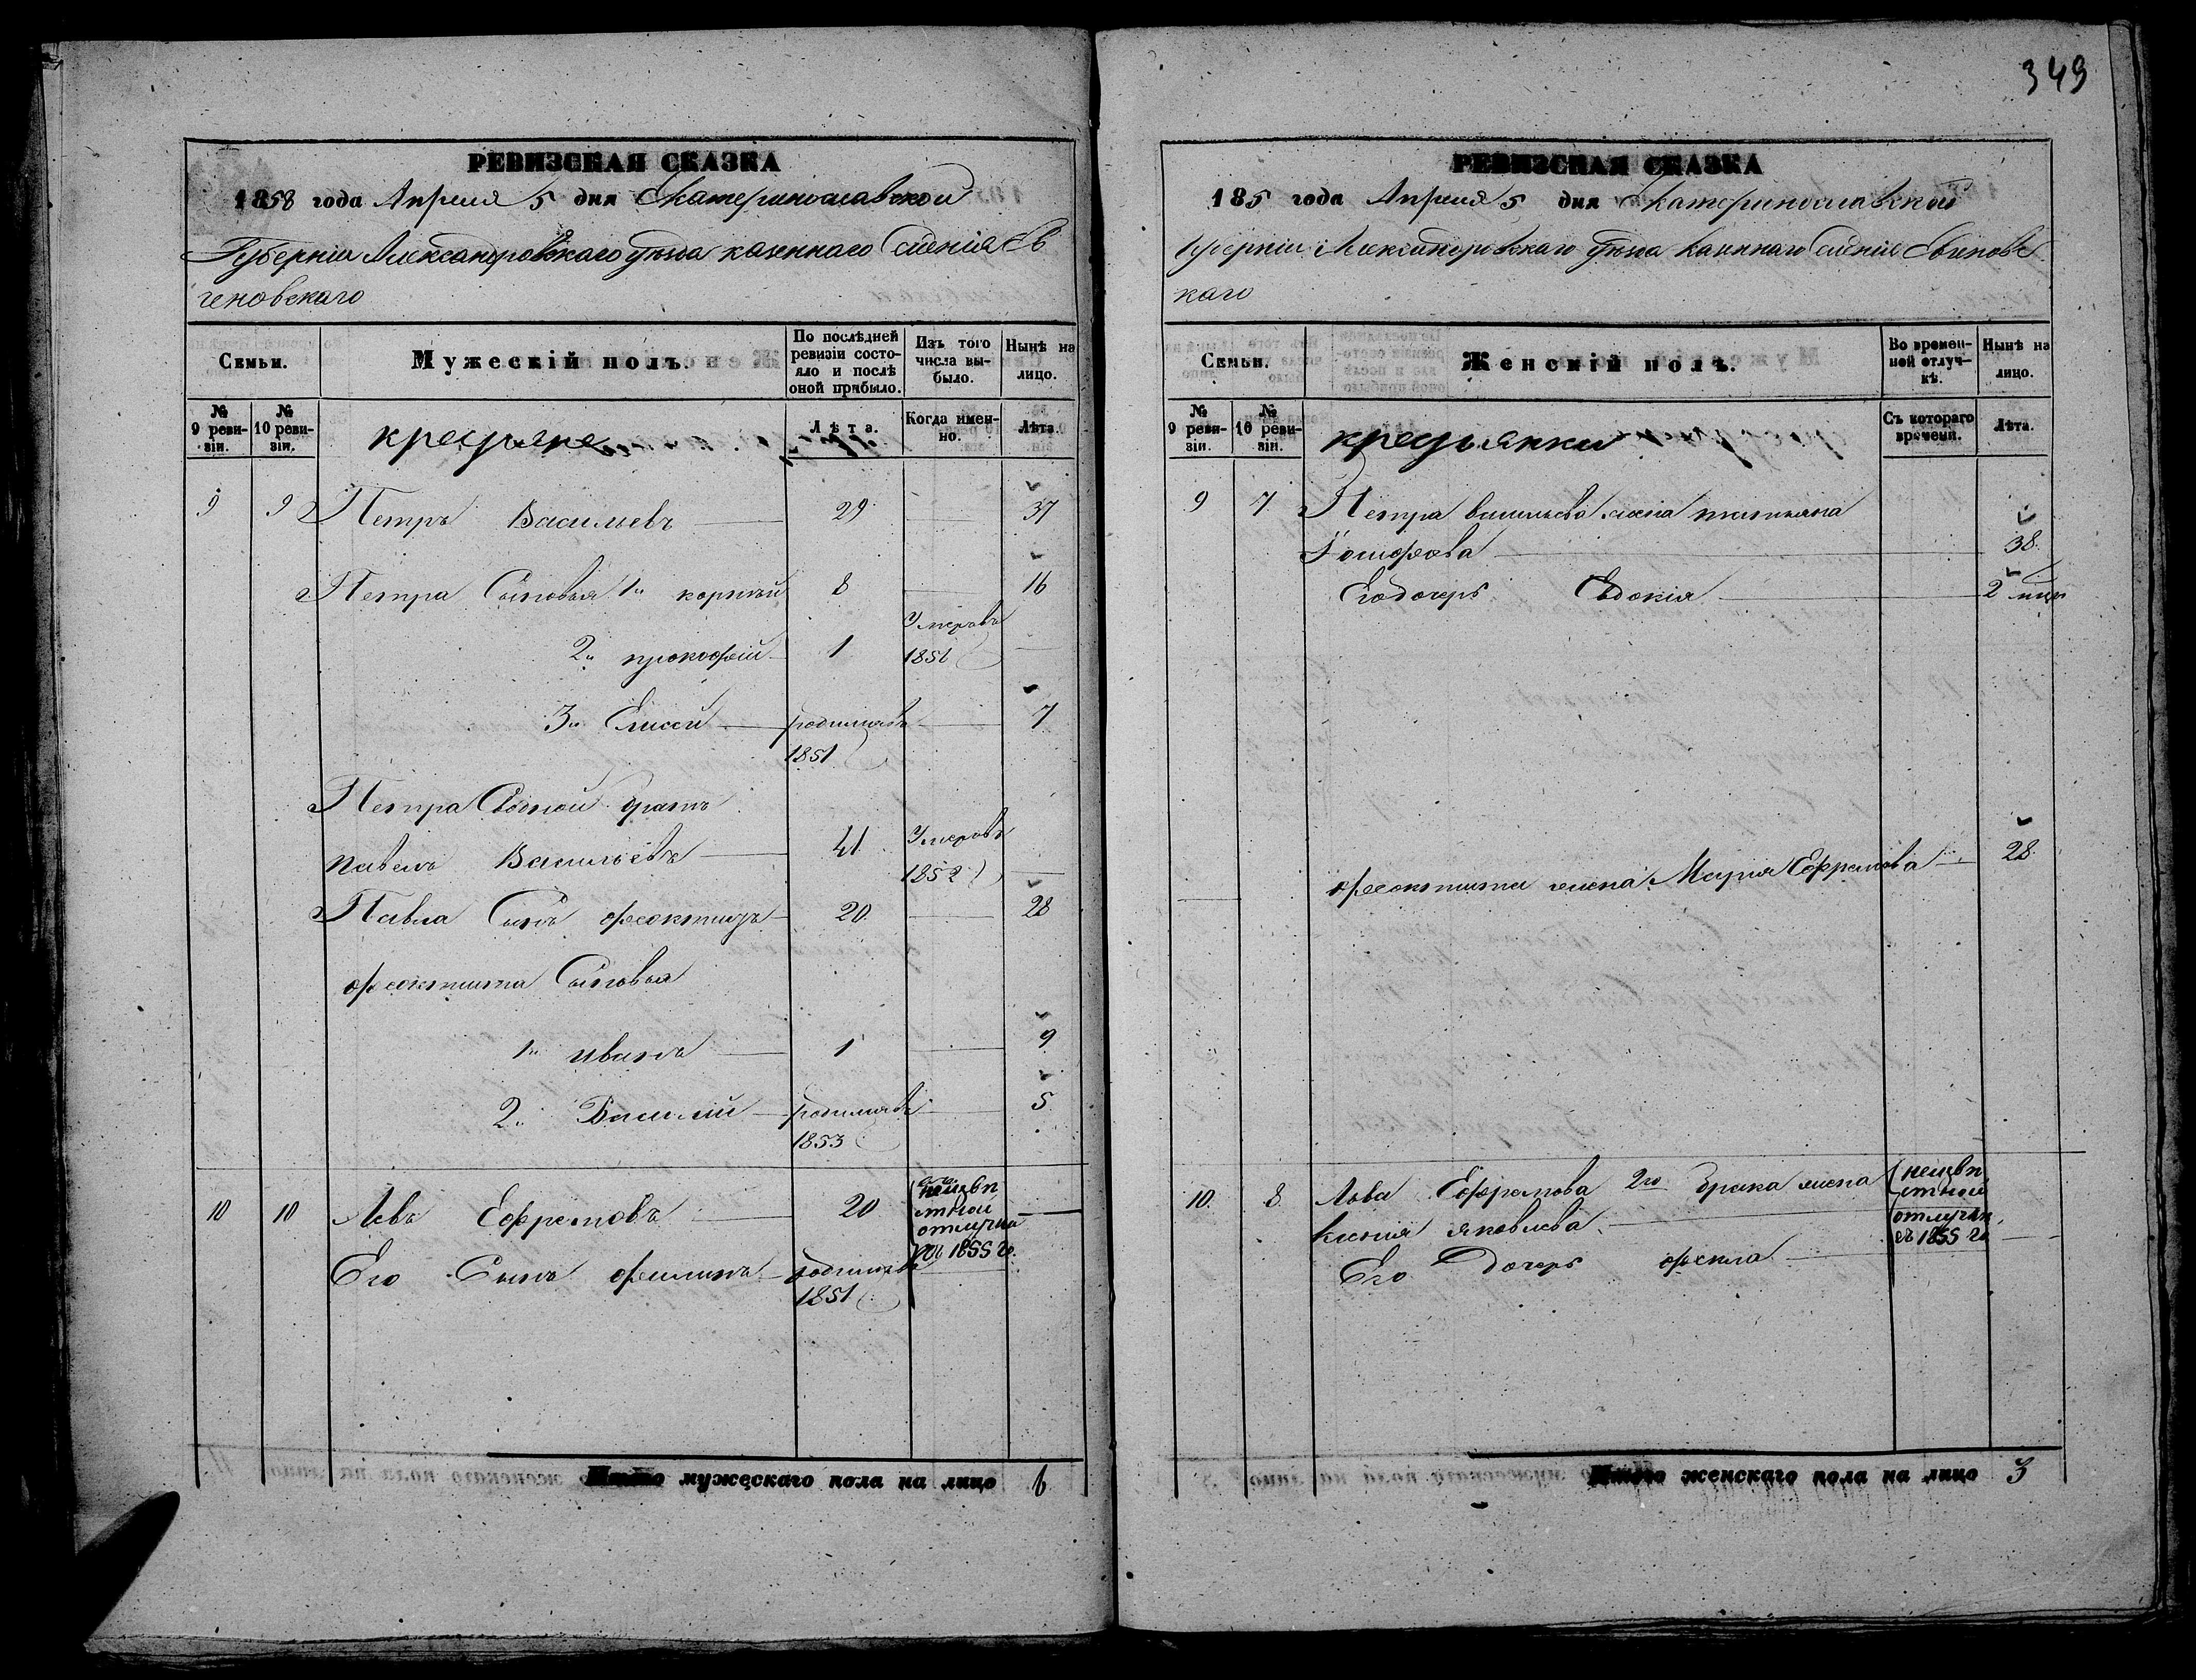 349
РЕВИЗСКАЯ СКАЗКА
1858 года Апреля 5 дня Екатеринославской
Губерніи Александровскаго уѣзда казеннаго Селенія Ев
геновскаго
Семьи.
Мужескій полъ.
По послѣдней ревизіи состояло и послѣ оной прибыло.
Изъ того числа выбыло.
Нынѣ на лицо.
№ 9 ревизіи.
№ 10 ревизіи.
крестьяне
Лѣта.
Когда именно.
Лѣта.
9 9 Петръ Васильевъ 29 37
Петра Сыновья 1й корнѣй 8 16
2й прокофій 1 Умеръ въ 1851
3й Елисей родился въ 1851 7
Петра Сводной братъ
павелъ Васильевъ 41 Умеръ въ 1852
Павла Сынъ феоктистъ 20 28
феоктиста Сыновья
1й иванъ 1 9
2й Василій родился въ 1853 5
10 10 Левъ Ефремовъ 20 отлучки 1855 го
Его Сынъ филипъ родился въ 1851
Итого мужескаго пола на лицо 6
РЕВИЗСКАЯ СКАЗКА
185 года Апреля 5 дня Екатеринославской
Губерніи Александровскаго уѣзда Казеннаго Селенія
каго
Семьи.
Женскій полъ.
Во временной отлучкѣ.
Нынѣ на лицо.
№ 9 ревизіи.
№ 10 ревизіи.
крестьянки
Съ котораго времени.
Лѣта.
9 7 Петра васильева жена татьяна
38
Его дочерь Евдокія 2
феоктиста жена Марія Ефремова 28
10. 8. Льва Ефремова 2го брака жена
ксенія яковлева отлучкѣ съ 1855 го
Его дочерь фекла
Итого женскаго пола на лицо 3